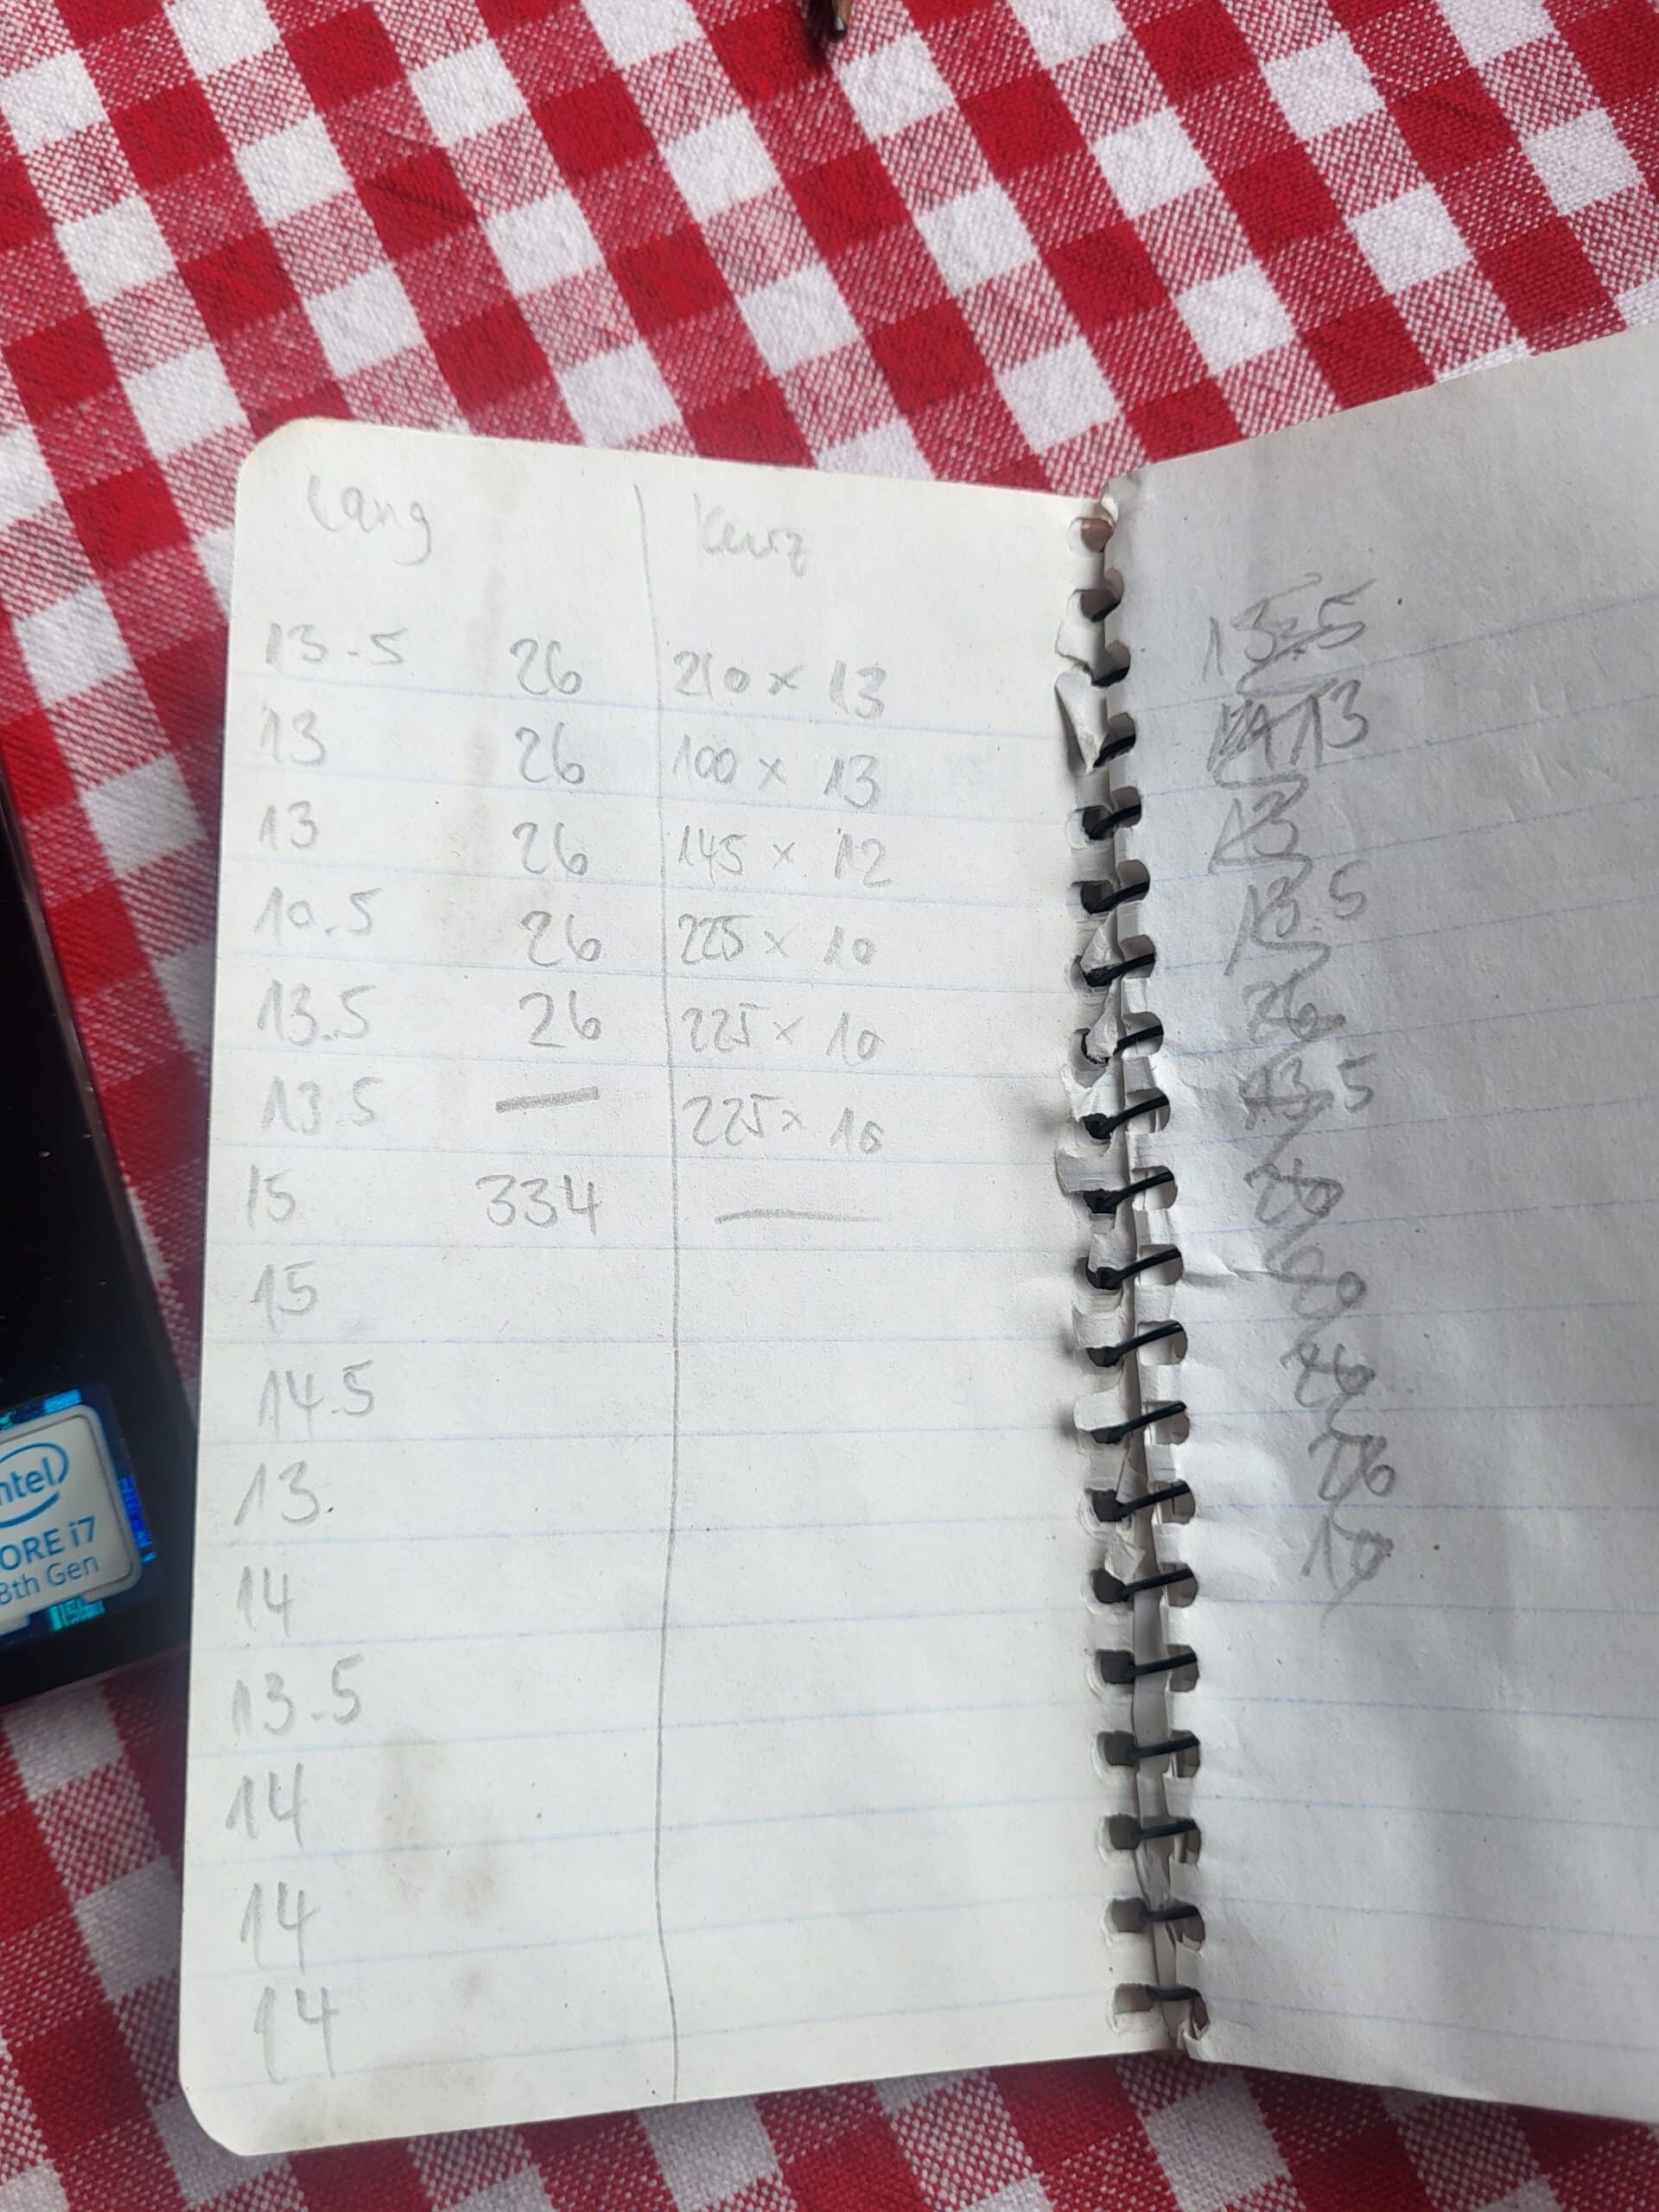 Lang Kurz
13.5 26 210 x 13
13 26 100 x 13
13 26 145 x 12
10.5 26 225 x 10
13.5 26 225 x 10
13.5 — 225 x 10
15 334 —
15
14.5
13.
14
13.5
14
14
14
13.5
13
13
13.5
26
13.5
26
intel
CORE i7
8th Gen